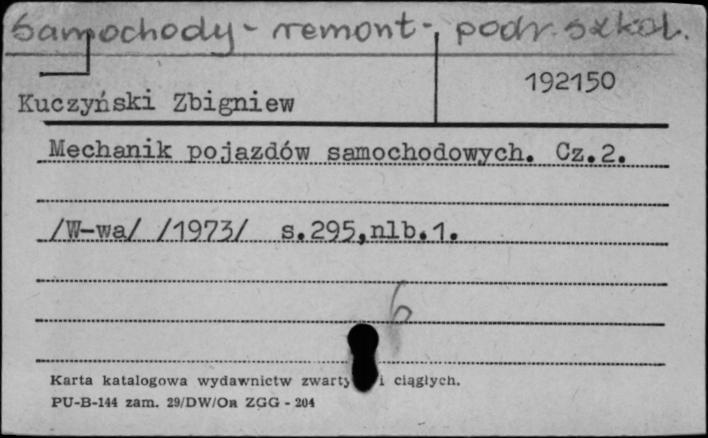 Samochody - remont - podr. szkol.
192150
Kuczyński Zbigniew
Mechanik pojazdów samochodowych. Cz.2.
/W-wa/ /1973/ s.295,nlb.1.
6
Karta katalogowa wydawnictw zwarty i ciągłych.
PU-B-144 zam. 29/DW/OR ZGG - 204